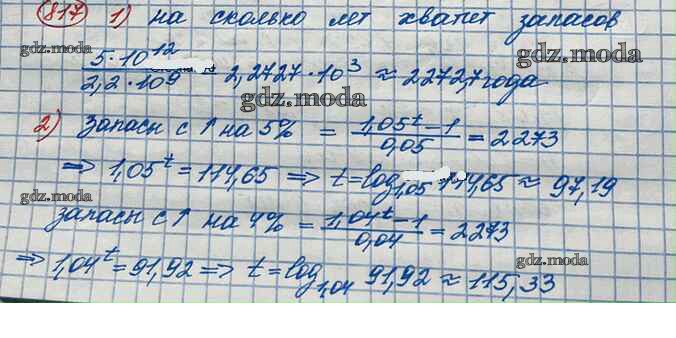 817 1) на сколько лет хватит запасов
gdz.moda gdz.moda
5·10¹² / 2,2·10⁹ 2,2727·10³ ≈ 2272,7 года
gdz.moda
2) Запасы с ↑ на 5% = (1,05ᵗ – 1) / 0,05 = 2273
gdz.moda
⇒ 1,05ᵗ = 114,65 ⇒ t = log₁,₀₅ 114,65 ≈ 97,19
gdz.moda
запасы с ↑ на 4% = (1,04ᵗ – 1) / 0,04 = 2273
gdz.moda
⇒ 1,04ᵗ = 91,92 ⇒ t = log₁,₀₄ 91,92 ≈ 115,33
gdz.moda
gdz.moda